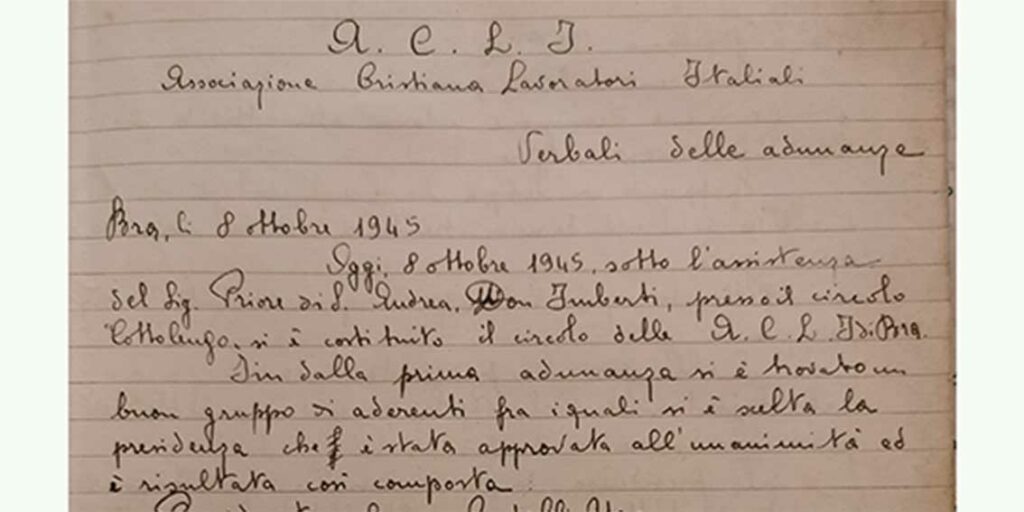 A. C. L. I.
Associazione Cristiana Lavoratori Italiali
Verbali delle adunanze
Bra, li 8 ottobre 1945
Oggi, 8 ottobre 1945, sotto l'assistenza
del Sig. Priore di S. Andrea, Don Imberti, presso il circolo
Cottolengo, si è costituito il circolo delle A. C. L. I di Bra.
Fin dalla prima adunanza si è trovato un
buon gruppo di aderenti fra i quali si è scelta la
presidenza che è stata approvata all'unanimità ed
è risultata così composta